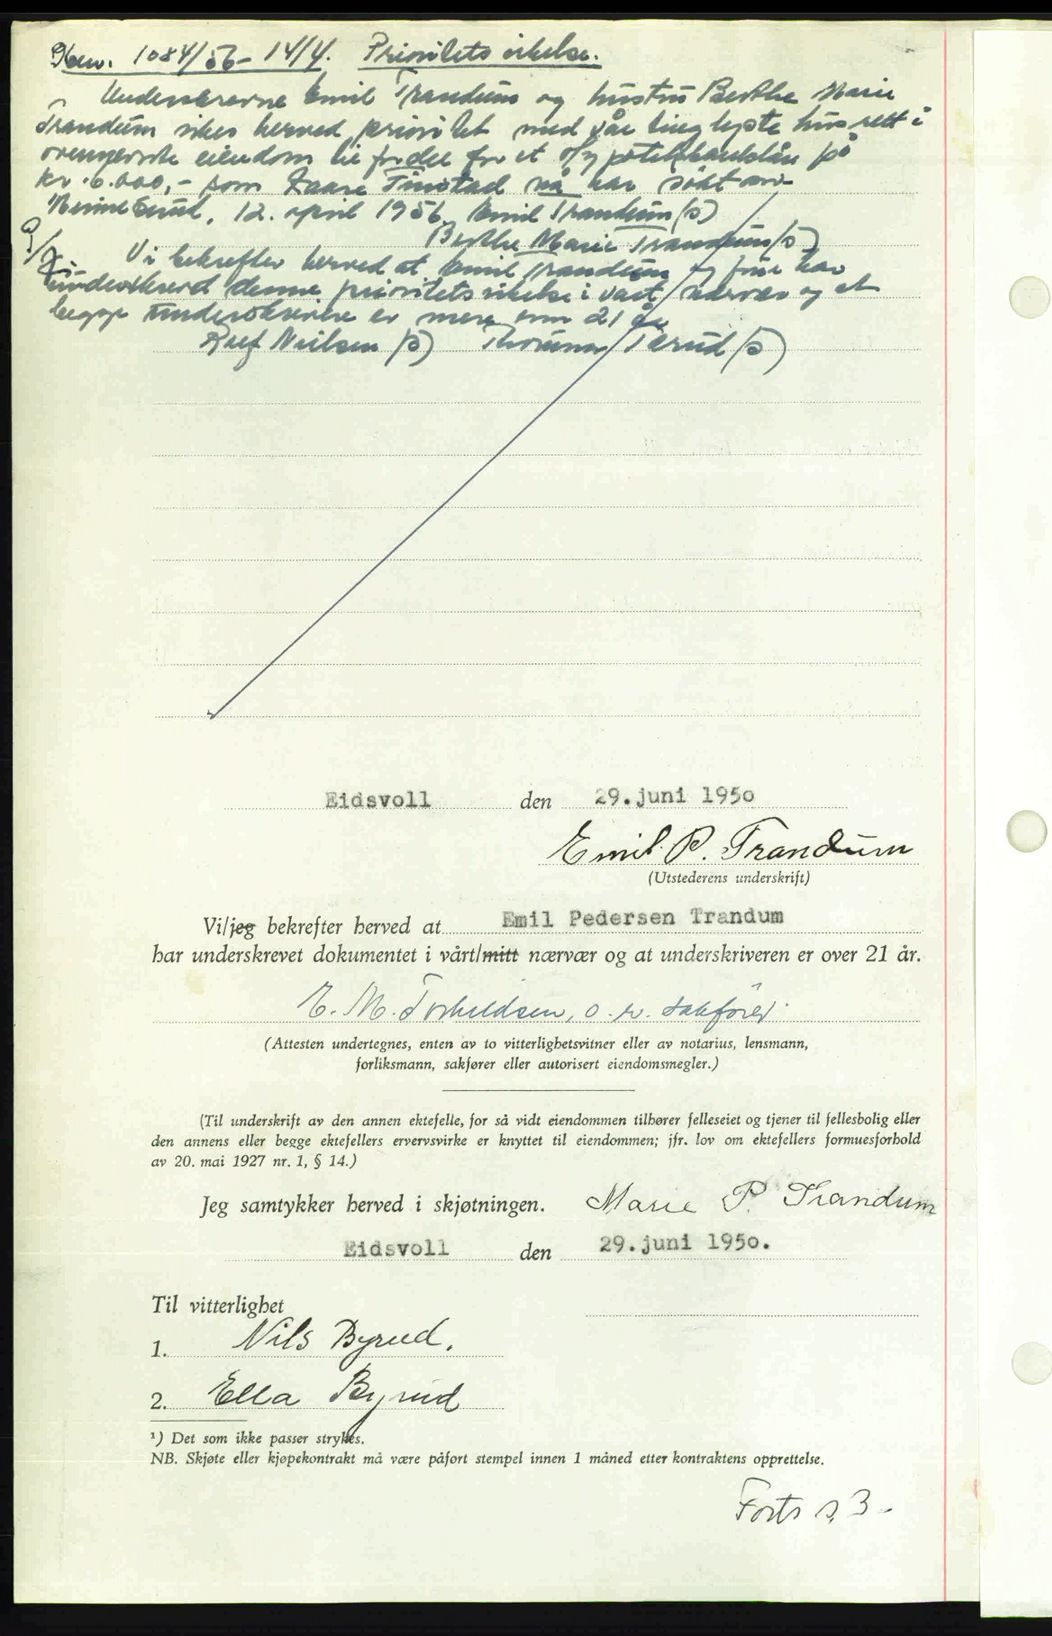 Henv. 1084/56 - 14/4. Prioritets vikelse.
Underskrevne Emil Trandum og hustru Berthe Marie
Trandum viker herved prioritet med vår tinglyste husrett i
ovennevnte eiendom til fordel for et hypotekbanklån på
kr. 6.000,- som Kaare Finstad nå har søkt om
12. april 1956 Emil Trandum (s)
Berthe Marie Trandum (s)
Vi bekrefter herved at Emil Trandum og frue har
underskrevet denne prioritetsvikelse i vårt nærvær og at
begge underskriverne er mere enn 21 år
Leif Nielsen (s) Thorunn Terud (s)
Eidsvoll den 29. juni 1950
Emil P. Trandum
(Utstederens underskrift)
Vi/jeg bekrefter herved at Emil Pedersen Trandum
har underskrevet dokumentet i vårt/mitt nærvær og at underskriveren er over 21 år.
E. M. Torkildsen, o. r. sakfører
(Attesten undertegnes, enten av to vitterlighetsvitner eller av notarius, lensmann,
forliksmann, sakfører eller autorisert eiendomsmegler.)
(Til underskrift av den annen ektefelle, for så vidt eiendommen tilhører felleseiet og tjener til fellesbolig eller
den annens eller begge ektefellers ervervsvirke er knyttet til eiendommen; jfr. lov om ektefellers formuesforhold
av 20. mai 1927 nr. 1, § 14.)
Jeg samtykker herved i skjøtningen. Marie P. Trandum
Eidsvoll den 29. juni 1950.
Til vitterlighet
1. Nils Byrud.
2. Ella Byrud
¹) Det som ikke passer strykes.
NB. Skjøte eller kjøpekontrakt må være påført stempel innen 1 måned etter kontraktens opprettelse.
Forts s. 3-